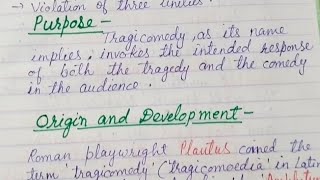 → Violation of three unities.
Purpose -
Tragicomedy, as its name
implies, invokes the intended response
of both the tragedy and the comedy
in the audience.
Origin and Development -
Roman playwright Plautus coined the
term 'tragicomedy' ('tragicomoedia' in Latin